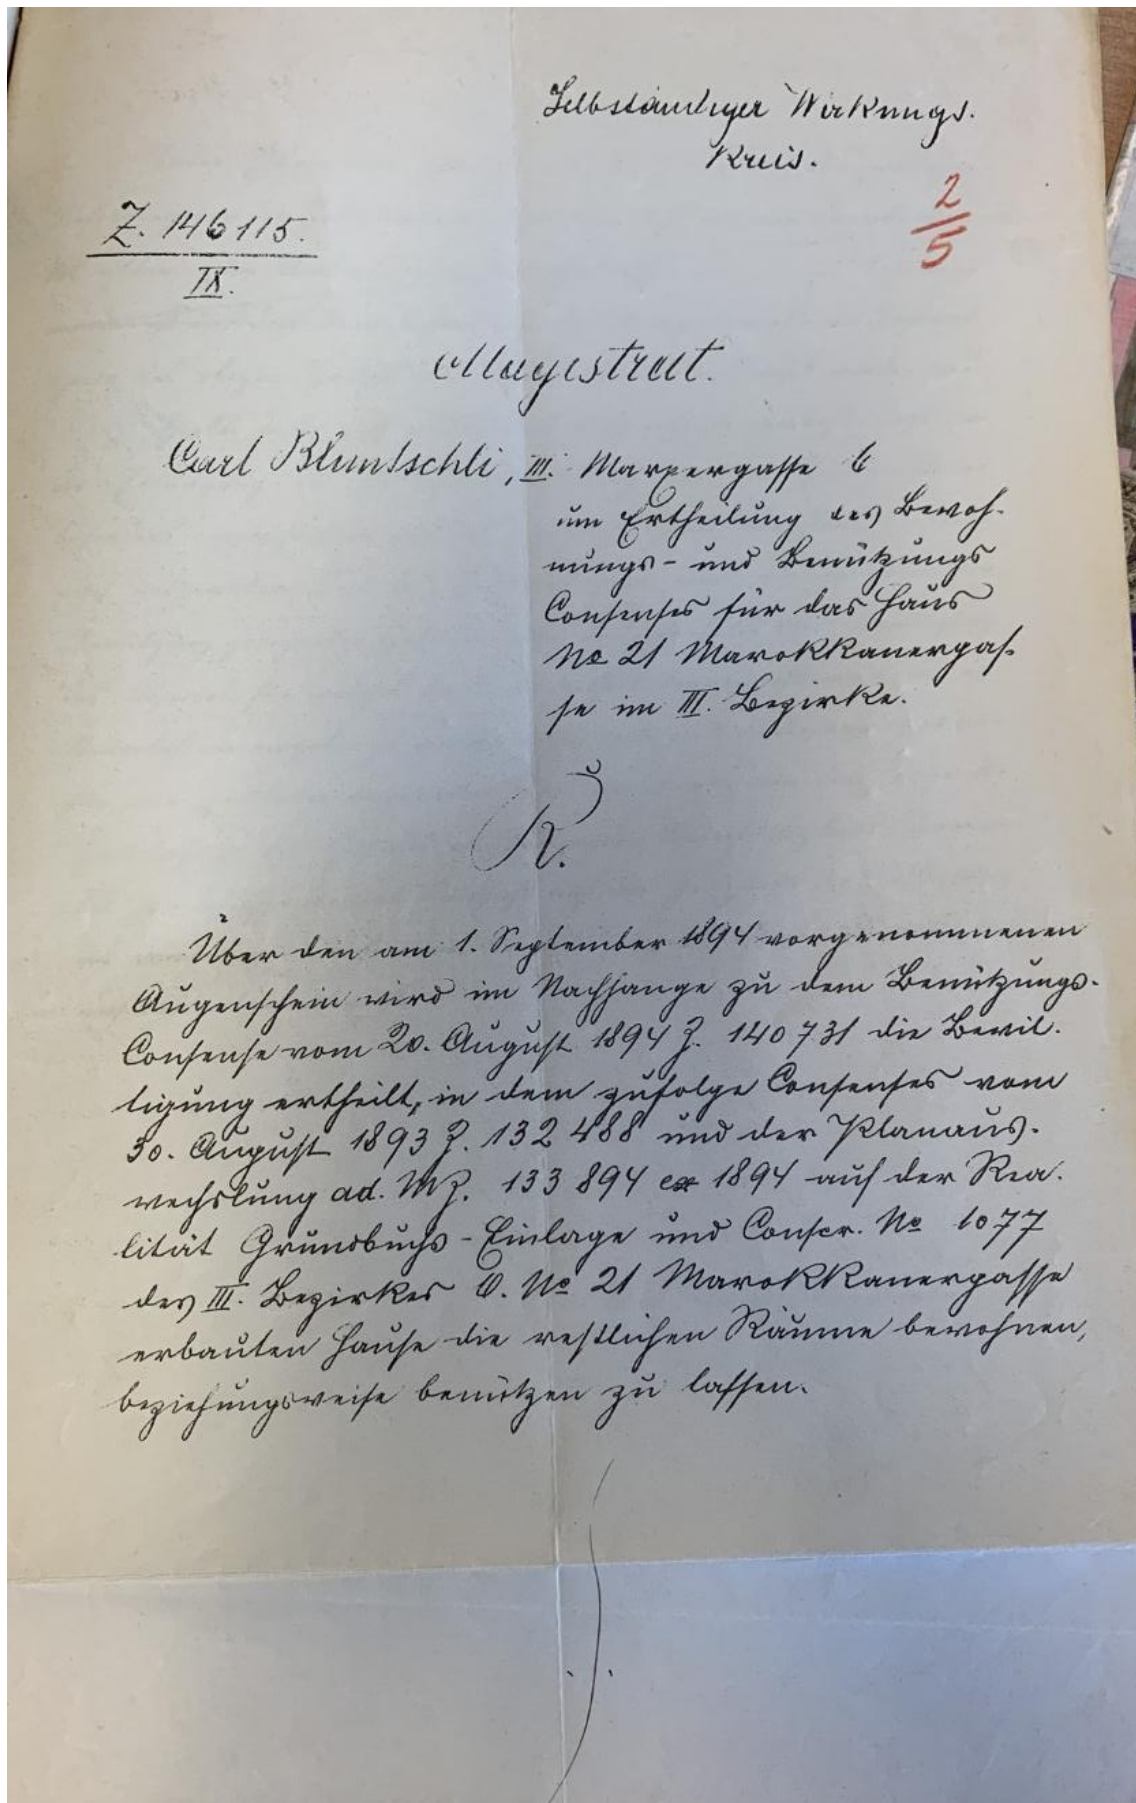 Selbständiger Wirkungs-
Kreis.
2
5
Z. 146115.
IX.
Magistrat.
Carl Bluntschli, III. Marxergasse 6
um Ertheilung des Bewoh-
nungs- und Benützungs
Consenses für das Haus
No 21 Marokkanergas-
se im III. Bezirke.
R.
Über den am 1. September 1894 vorgenommenen
Augenschein wird im Nachhange zu dem Benützungs-
Consense vom 20. August 1894 Z. 140731 die Bewil-
ligung ertheilt, in dem zufolge Consenses vom
30. August 1893 Z. 132488 und der Planaus-
wechslung ad. M.Z. 133894 ex 1894 auf der Rea-
lität Grundbuchs-Einlage und Conscr. No 1077
des III. Bezirkes O. No 21 Marokkanergasse
erbauten Hause die restlichen Räume bewohnen,
beziehungsweise benützen zu lassen.